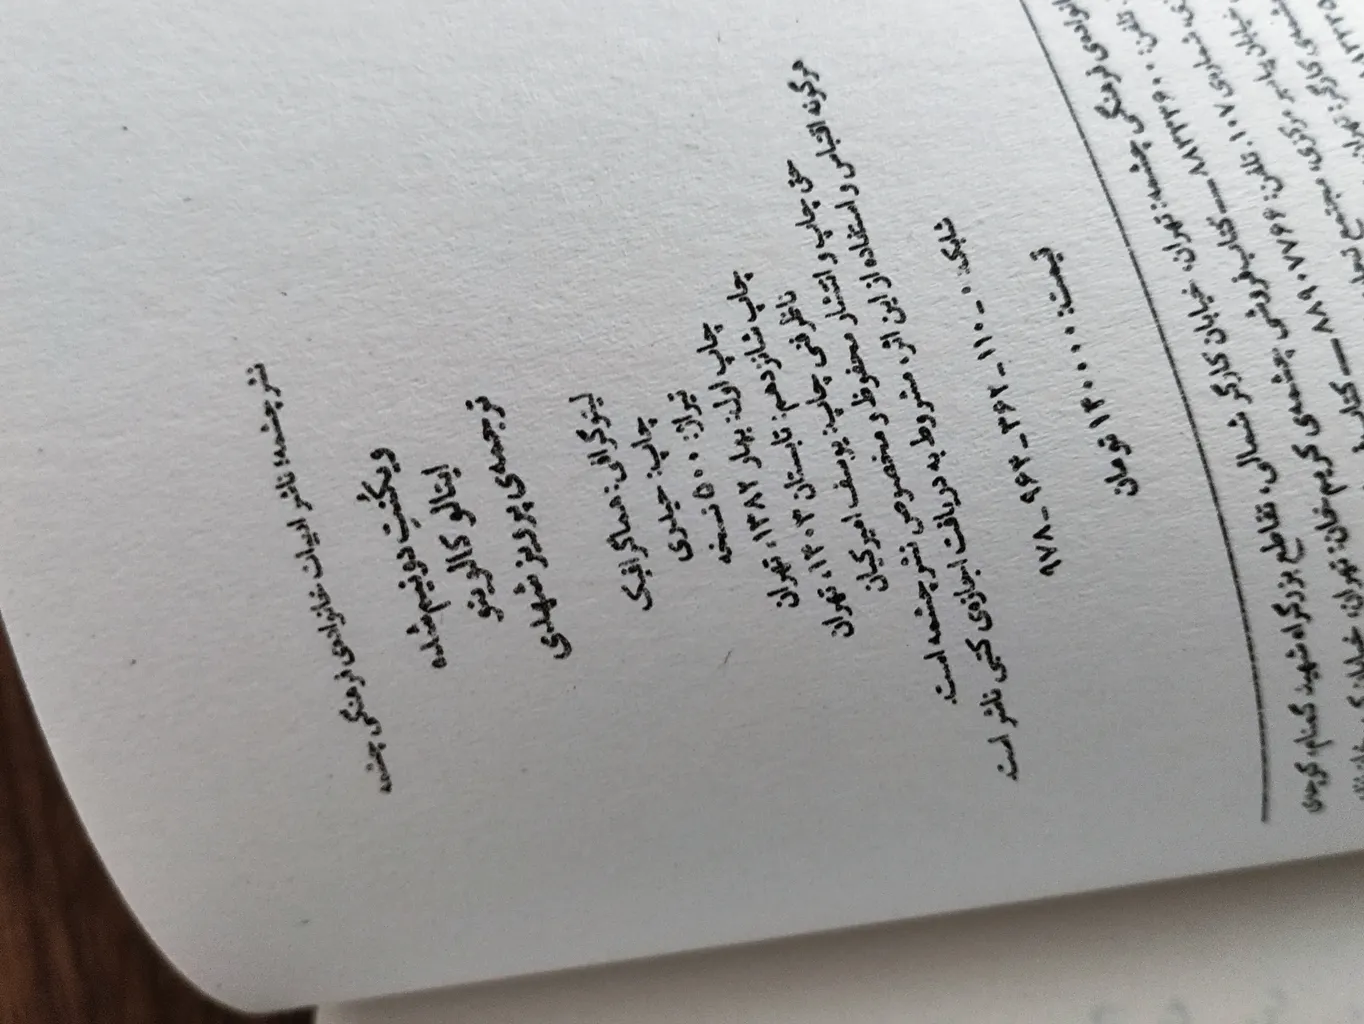 نشر چشمه: ناشر ادبیات خانواده‌ی فرهنگی چشمه
ویکُنتِ دونیم‌شده
ایتالو کالوینو
ترجمه‌ی پرویز شهدی
لیتوگرافی: هماگرافیک
چاپ: حیدری
تیراژ: ۵۰۰ نسخه
چاپ اول: بهار ۱۳۸۲، تهران
چاپ شانزدهم: تابستان ۱۴۰۳، تهران
ناظر فنی چاپ: یوسف امیرکیان
حق چاپ و انتشار محفوظ و مخصوص نشر چشمه است.
هرگونه اقتباس و استفاده از این اثر، مشروط به دریافت اجازه‌ی کتبی ناشر است.
شابک: ۰ - ۱۱۰ - ۳۶۲ - ۹۶۴ - ۹۷۸
قیمت: ۱۴۰۰۰۰ تومان
فرهنگی چشمه: تهران، خیابان کارگر شمالی، تقاطع بزرگراه شهید گمنام، کوچه‌ی
تلفن: ۸۸۳۳۳۶۰۰ — کتاب‌فروشی چشمه‌ی کریم‌خان: تهران، خیابان
شماره‌ی ۱۰۷. تلفن: ۸۸۹۰۷۷۶۶ —
مرکزی، مجتمع
کارگر: تهران،